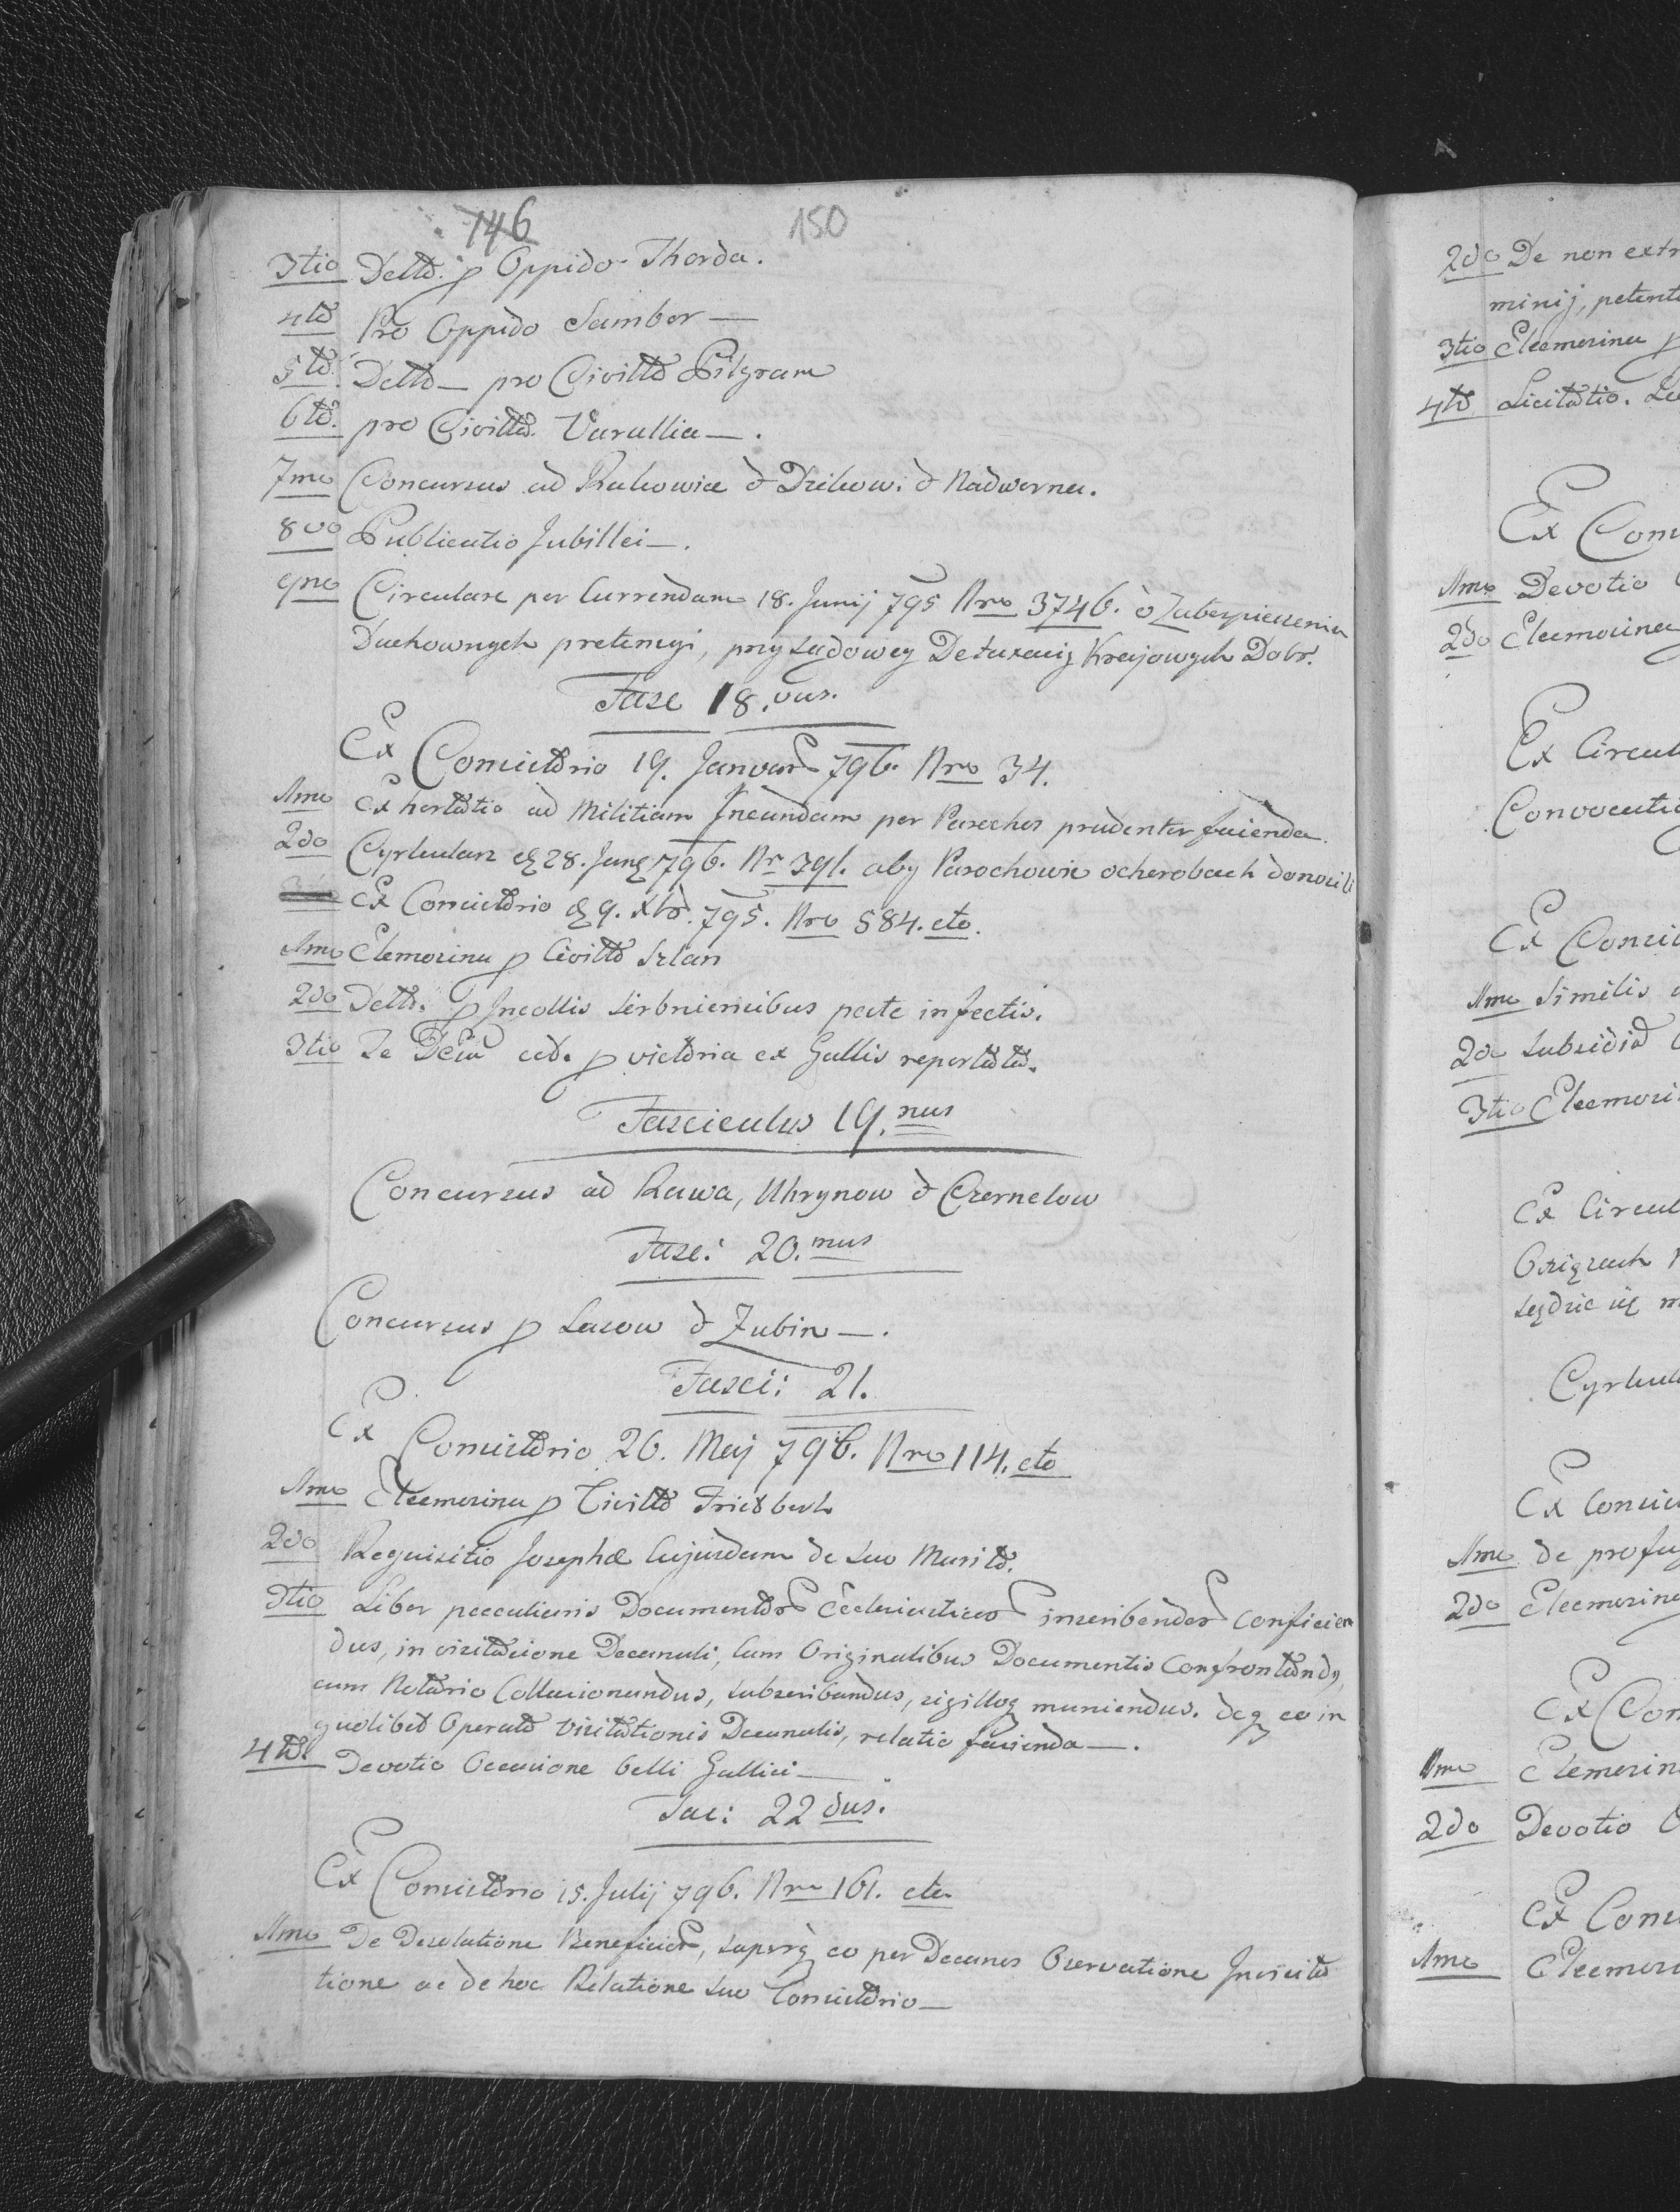 146 150
3tio Detto p Oppido Thorda.
4to Pro Oppido Sambor —
5to Detto — pro Civitto Pilgram
6to. pro Civitto. Varallia —.
7mo Concursus ad Rakowice & Dzikow. & Nadworna.
8vo Publicatio Jubillei —.
9no Circulare per Currendam 18. Junij 795 Nro 3746. o Zabezpieczeniu
Duchownych pretensyi, przy Sądowey Detaxacij Krajowych Dobr.
Fasc 18.vus.
Ex Consistorio 19. Januar 796. Nro 34.
1mo Exhortatio ad Militiam Ineundam per Parochos prudenter facienda.
2do Cyrkularz 28. Jung 796. Nr 391. aby Parochowie o chorobach donosili
Ex Consistorio 9. Xbr. 795. Nro 584. etc.
1mo Elemosina p Civitto Szlan
2do Detto. p Incollis Sirbniensibus peste infectis.
3tio Te Deum p victoria ex Gallis reportata.
Fasciculus 19.nus
Concursus ad Rawa, Uhrynow & Czernelow
Fasc: 20.mus
Concursus p Sasow & Zubin —.
Fasci: 21.
Ex Consistorio 26. Maj 796. Nro 114. etc
1mo Eleemosina p Civitto
2do Requisitio Josephæ Cujusdam de suo Marito.
3tio Liber peculiaris Documentor Ecclesiasticor inscribendor conficien
dus, in visitacione Decanali, cum Originalibus Documentis Confrontand9,
cum Notario Collacionandus, subscribandus, sigilloq muniendus. deq eo in
quolibet Operato visitationis Decanalis, relatio facienda —.
4to. Devotio Occasione belli Gallici —
Fac: 22dus.
Ex Consistorio 15. Julij 796. Nro 161. etc
1mo De Desolatione Beneficior, superq eo per Decanos Oservatione Invisita
tione ac de hoc Relatione suo Consistorio —
2do De non extr
minij, petent
3tio Eleemosina p
4to Licitatio.
Ex Cons
1mo Devotio
2do Eleemosina
Ex Circul
Convocati
Ex Consi
1mo Similis
2do Subsidia
3tio Eleemosi
Ex Circul
sędzie się
Cyrkul
Ex Consis
1mo de profu
2do Eleemosina
Ex Con
1mo Elemosin
2do Devotio
Ex Cons
1mo Eleemos